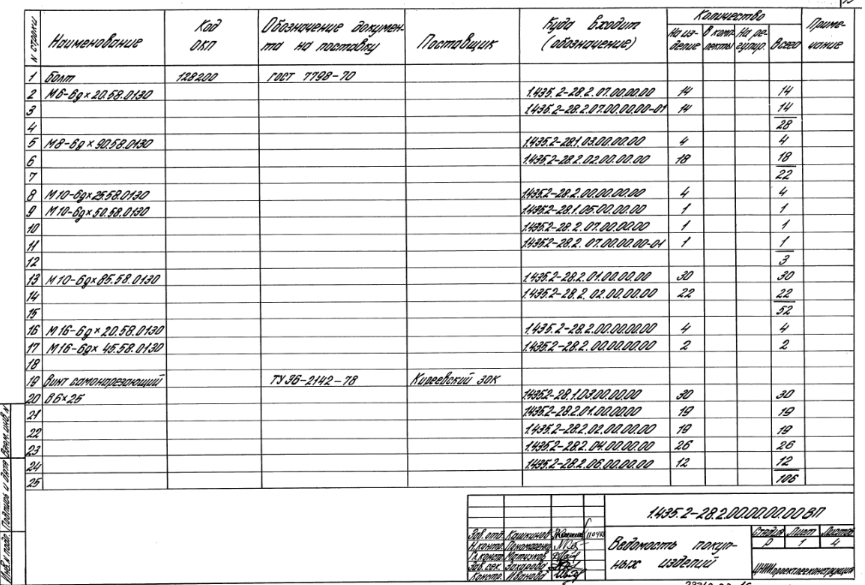 N строки Наименование Код ОКП Обозначение докумен- та на поставку Поставщик Куда входит (обозначение) Количество На из- делие В комп- лекты На ре- гулир. Всего Приме- чание
1 Болт 128200 ГОСТ 7798-70
2 М6-6g×20.58.0130 1.435.2-28.2.07.00.00.00 14 14
3 1.435.2-28.2.07.00.00.00-01 14 14
4 28
5 М8-6g×30.58.0130 1.435.2-28.1.03.00.00.00 4 4
6 1.435.2-28.2.02.00.00.00 18 18
7 22
8 М10-6g×25.58.0130 1.435.2-28.2.00.00.00.00 4 4
9 М10-6g×50.58.0130 1.435.2-28.1.05.00.00.00 1 1
10 1.435.2-28.2.07.00.00.00 1 1
11 1.435.2-28.2.07.00.00.00-01 1 1
12 3
13 М10-6g×85.58.0130 1.435.2-28.2.01.00.00.00 30 30
14 1.435.2-28.2.02.00.00.00 22 22
15 52
16 М16-6g×20.58.0130 1.435.2-28.2.00.00.00.00 4 4
17 М16-6g×45.58.0130 1.435.2-28.2.00.00.00.00 2 2
18
19 Винт самонарезающий ТУ36-2142-78 Киреевский ЗЛК
20 В6×25 1.435.2-28.1.03.00.00.00 30 30
21 1.435.2-28.2.01.00.00.00 19 19
22 1.435.2-28.2.02.00.00.00 19 19
23 1.435.2-28.2.04.00.00.00 26 26
24 1.435.2-28.2.06.00.00.00 12 12
25 106
Инв.N подл. Подпись и дата Взам.инв.N
1.435.2-28.2.00.00.00.00 ВП
Зав. отд.
Н.контр.
Гл.констр.
Зав. сек. Захарова
Констр. Иванова
Ведомость покуп-
ных изделий
Стадия Лист Листов
Р 1 4
ЦНИИпроектлегконструкция